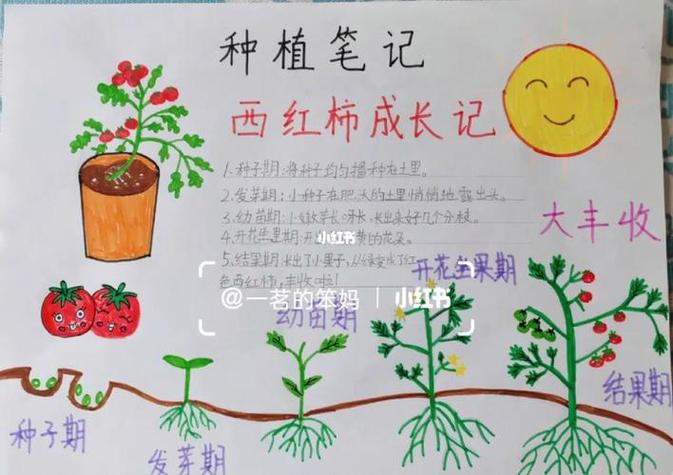 种植笔记
西红柿成长记
1.种子期:将种子均匀播种在土里。
2.发芽期:小种子在肥沃的土里悄悄地露出头。
3.幼苗期:小嫩芽长呀长,长出来好几个分枝。
4.开花坐果期:开出 的花朵。
小红书
5.结果期:长出了小果子,从绿变成了红
色西红柿,丰收啦!
大丰收
@一茗的笨妈 | 小红书
开花坐果期
幼苗期
结果期
种子期
发芽期